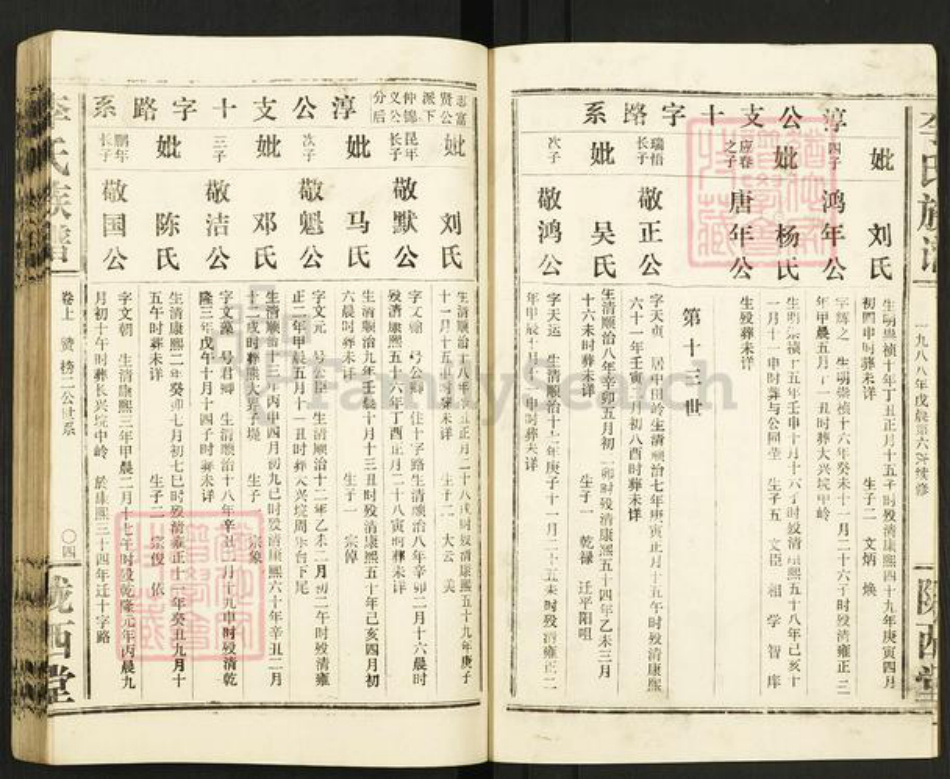 李氏族谱
一九八八年戊辰第六次续修
陇西堂
淳公支十字路系
妣 刘氏
生明崇祯十年丁丑正月十五子时殁清康熙四十九年庚寅四月
初四申时葬未详 生子二 文炳 焕
四子 鸿年公
字辉之 生明崇祯十六年癸未十一月二十六丁时殁清雍正二
年甲辰五月丁一丑时葬大兴垸中岭
妣 杨氏
生明崇祯十五年壬申十月十六子时殁清康熙五十八年己亥十
一月十一申时葬与公同茔 生子五 文臣 相 学 智 库
应春之子 唐年公
生殁葬未详
第十三世
瑞悟长子 敬正公
字天贞 居中田岭生清顺治七年庚寅正月十五午时殁清康熙
六十一年壬寅 月初八酉时葬未详
妣 吴氏
生清顺治八年辛卯五月初 卯时殁清康熙五十四年乙未三月
十六未时葬未详 生子一 乾禄 迁平阳咀
次子 敬鸿公
字天运 生清顺治十七年庚子十一月二十五未时殁清雍正二
年甲辰七月十一申时葬未详
志富贤公派下仲锦义公分后 淳公支十字路系
妣 刘氏
生清顺治十八年辛丑正月二十八戌时殁清康熙五十九年庚子
十一月十五申时葬未详 生子二 大云 美
昆年长子 敬默公
字文翰 号公卿 住十字路生清顺治八年辛卯二月十六辰时
殁清康熙五十六年丁酉正月二十八寅时葬未详
妣 马氏
生清顺治九年壬辰十月十三丑时殁清康熙五十年己亥四月初
六辰时葬未详 生子一 宗倬
次子 敬魁公
字文元 号公臣 生清顺治十二年乙未二月初二午时殁清雍
正二年甲辰五月十一丑时葬大兴垸周朱台下尾
妣 邓氏
生清顺治十三年丙申四月初九巳时殁清康熙六十年辛丑二月
十二戌时葬熊大男子堤 生子一 宗象
三子 敬洁公
字文藻 号君卿 生清顺治十八年辛丑 月十九申时殁清乾
隆三年戊午十月十四子时葬未详
妣 陈氏
生清康熙二年癸卯七月初七巳时殁清雍正十一年癸丑九月十
五午时葬未详 生子二 宗俊 依
鹏年长子 敬国公
字文朝 生清康熙三年甲辰二月十七午时殁乾隆元年丙辰九
月初十午时葬长兴垸中岭 于康熙三十四年迁十字路
李氏族谱
卷上 赞 榜二公世系
〇四
陇西堂
FamilySearch